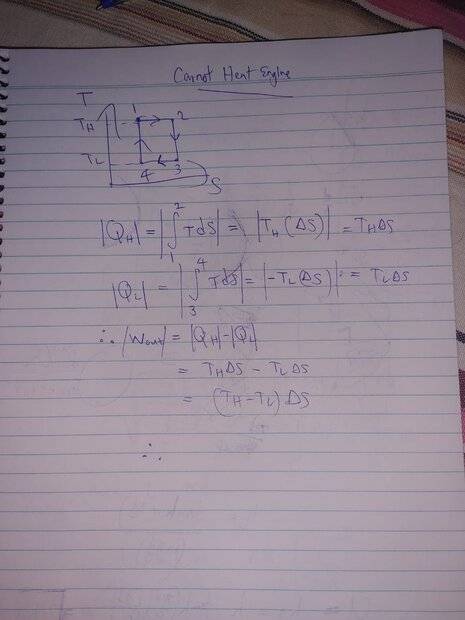 Carnot Heat Engine
T
1
2
TH
TL
4
3
S
|QH| = |∫₁² TdS| = |TH (ΔS)| = THΔS
|QL| = |∫₃⁴ TdS| = |-TL(ΔS)| = TLΔS
∴ |Wout| = |QH|-|QL|
= THΔS - TLΔS
= (TH-TL) ΔS
∴